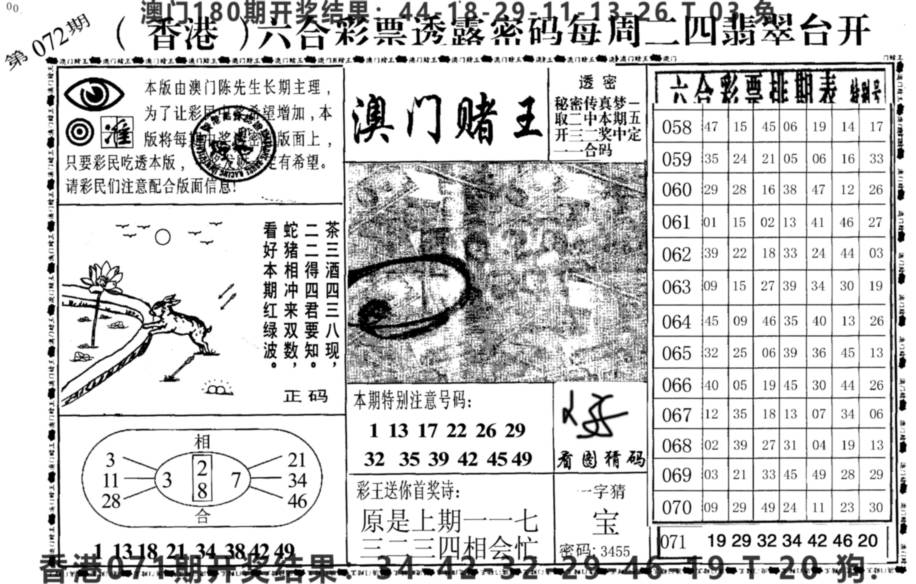 澳门180期开奖结果：44-18-29-11-13-26 T 03 兔
第072期
（香港）六合彩票透露密码每周二四翡翠台开
本版由澳门陈先生长期主理，
为了让彩民中奖希望增加，本
只要彩民吃透本版，
有希望。
请彩民们注意配合版面信息！
准
澳门赌王
透密
秘密传真梦一
取二中本期五
开三二奖中定
一一合码
茶三酒四三八现，
二二得四君要知。
蛇猪相冲来双数，
看好本期红绿波。
正码
相
3 21
11 3 2 7 34
28 8 46
合
1 13 18 21 34 38 42 49
本期特别注意号码：
1 13 17 22 26 29
32 35 39 42 45 49
看图猜码
彩王送你首奖诗：
原是上期一一七
三二三四相会忙
一字猜
宝
密码：3455
六合彩票排期表 特别号
058 47 15 45 06 19 14 17
059 35 24 21 05 06 16 33
060 29 28 16 38 47 12 26
061 01 15 02 13 41 46 27
062 39 22 18 33 24 44 03
063 09 15 27 39 34 30 19
064 45 09 46 35 40 13 26
065 32 25 06 39 36 45 13
066 40 05 19 45 30 44 26
067 12 35 18 13 07 34 06
068 02 39 27 31 04 19 13
069 03 21 33 45 49 28 29
070 09 29 49 24 11 23 30
071 19 29 32 34 42 46 20
香港071期开奖结果 34-42-32-29-46-19 T 20 狗